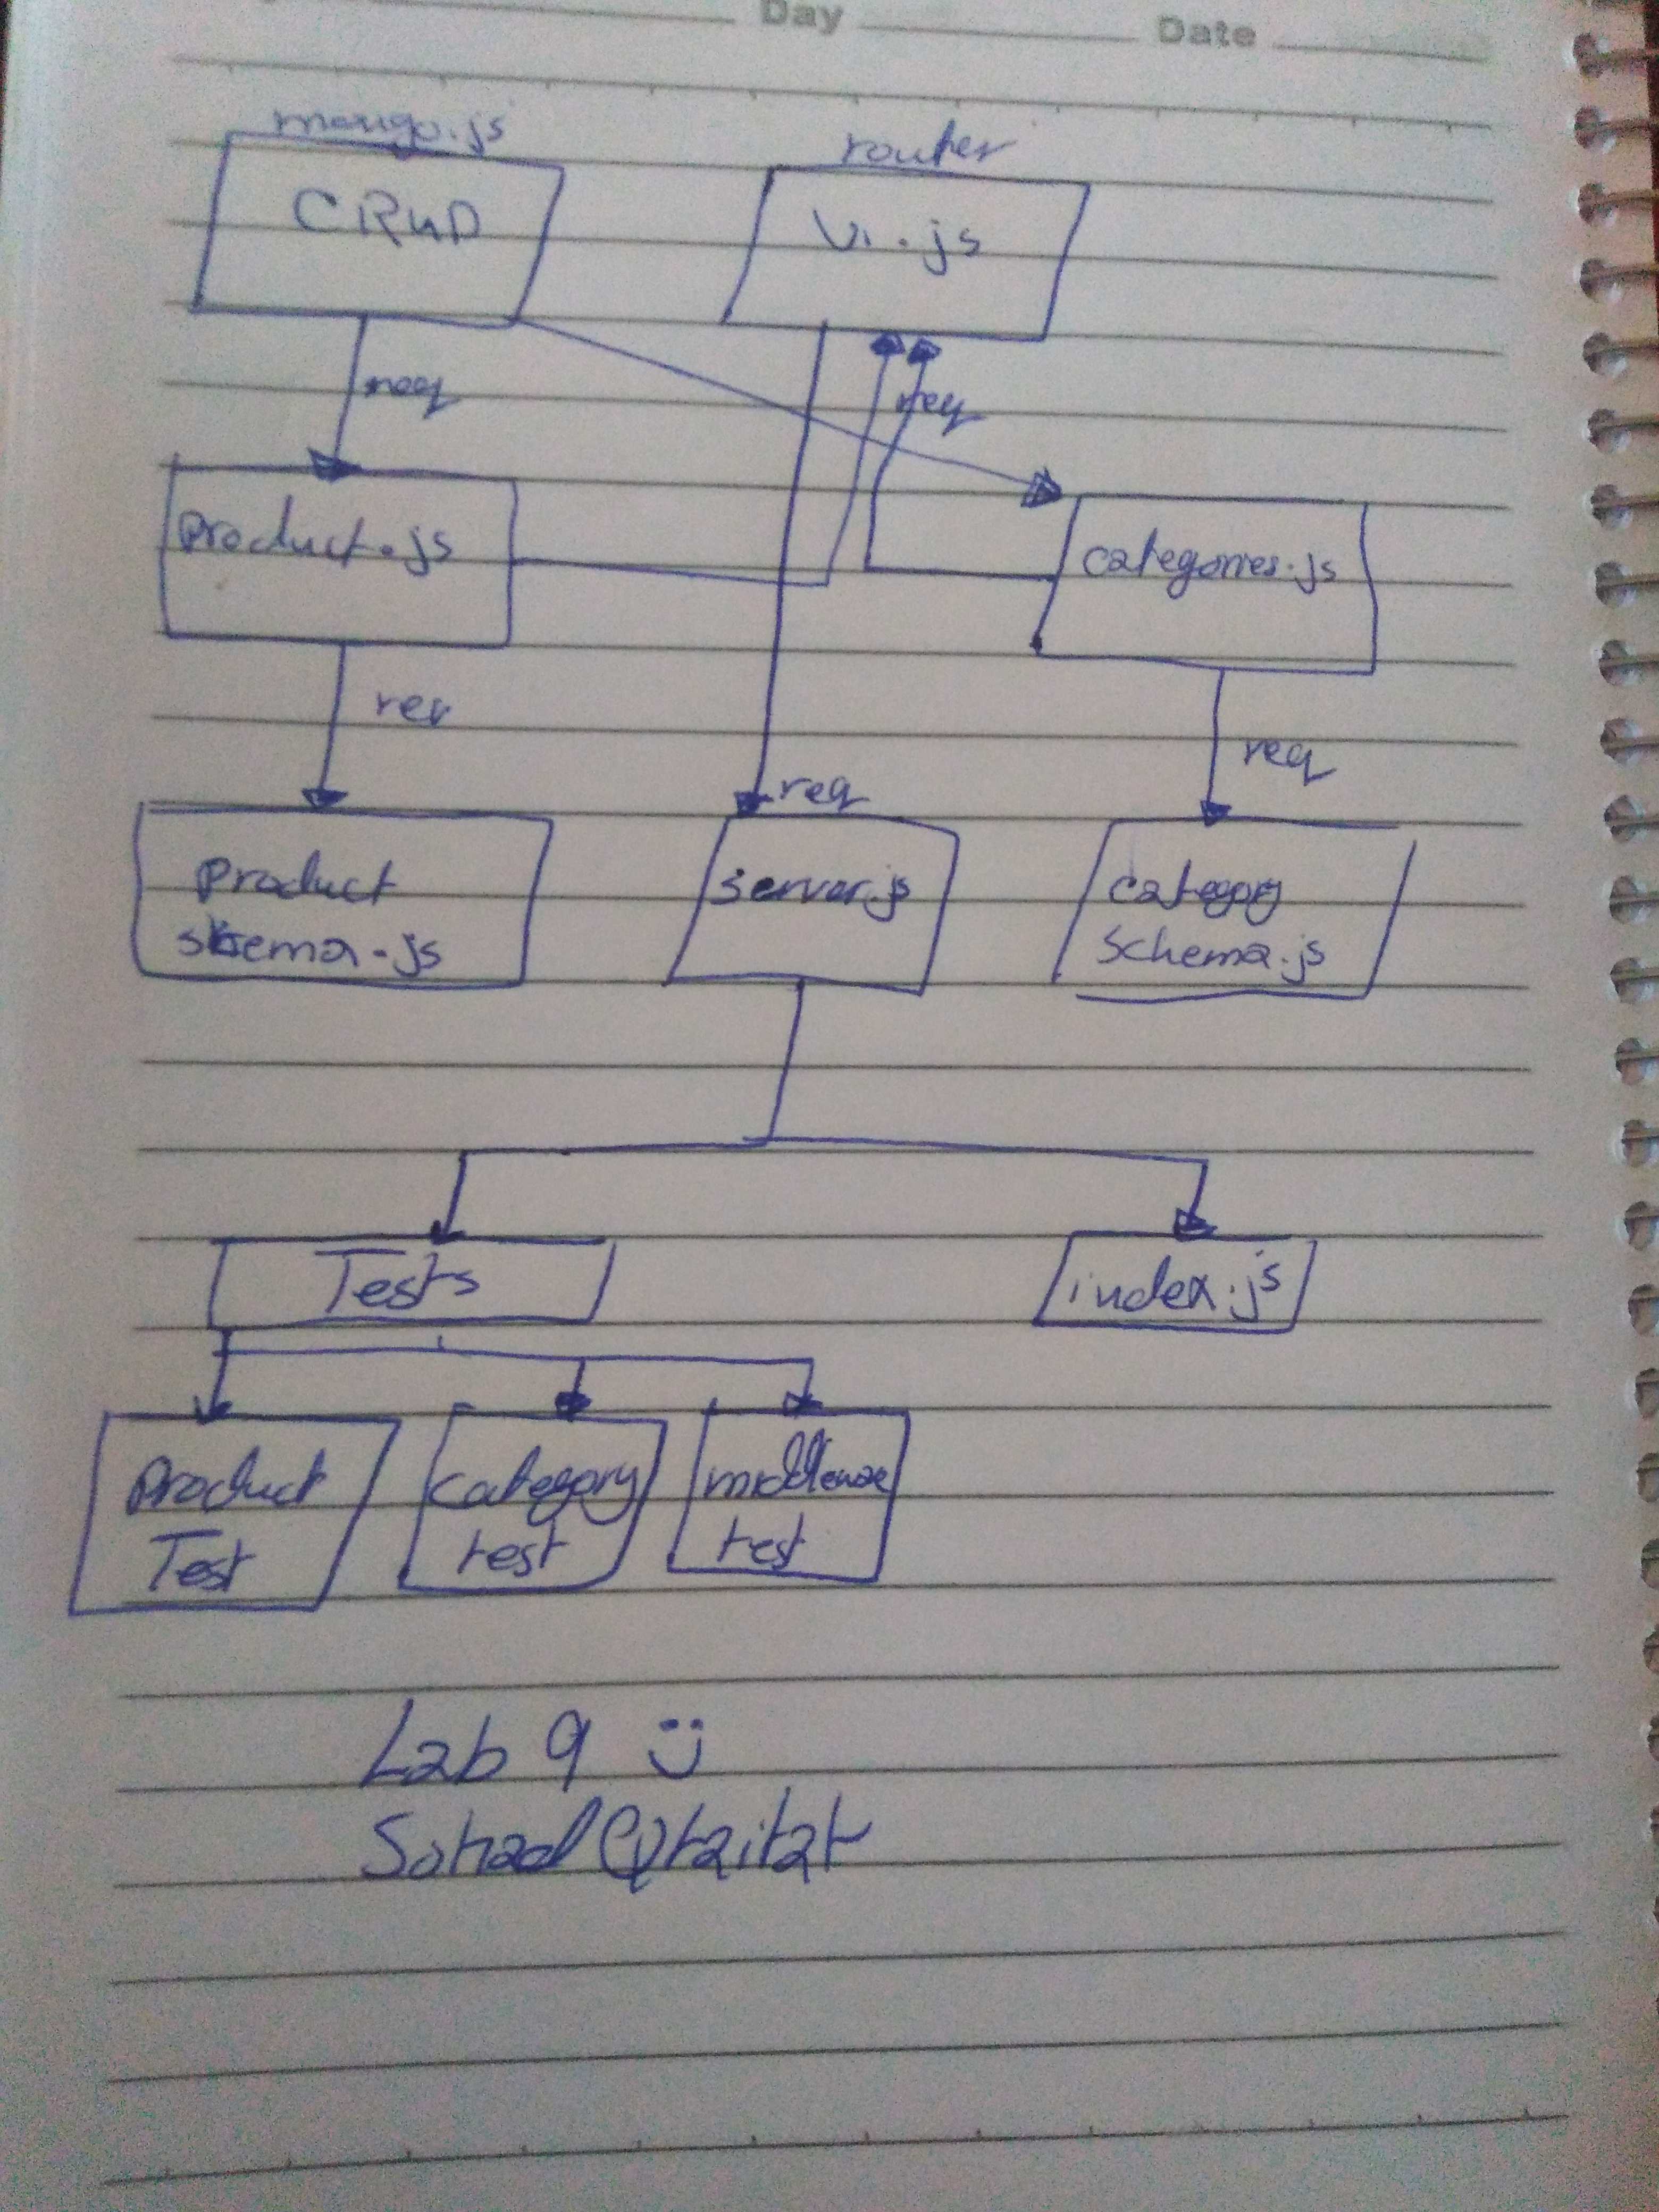 Day Date
mongo.js
router
CRUD
V1.js
req
req
product.js
categories.js
req
req
req
product
schema.js
server.js
category
schema.js
Tests
index.js
Product
Test
category
test
middleware
test
Lab 9 :)
Sohad Qtaitat